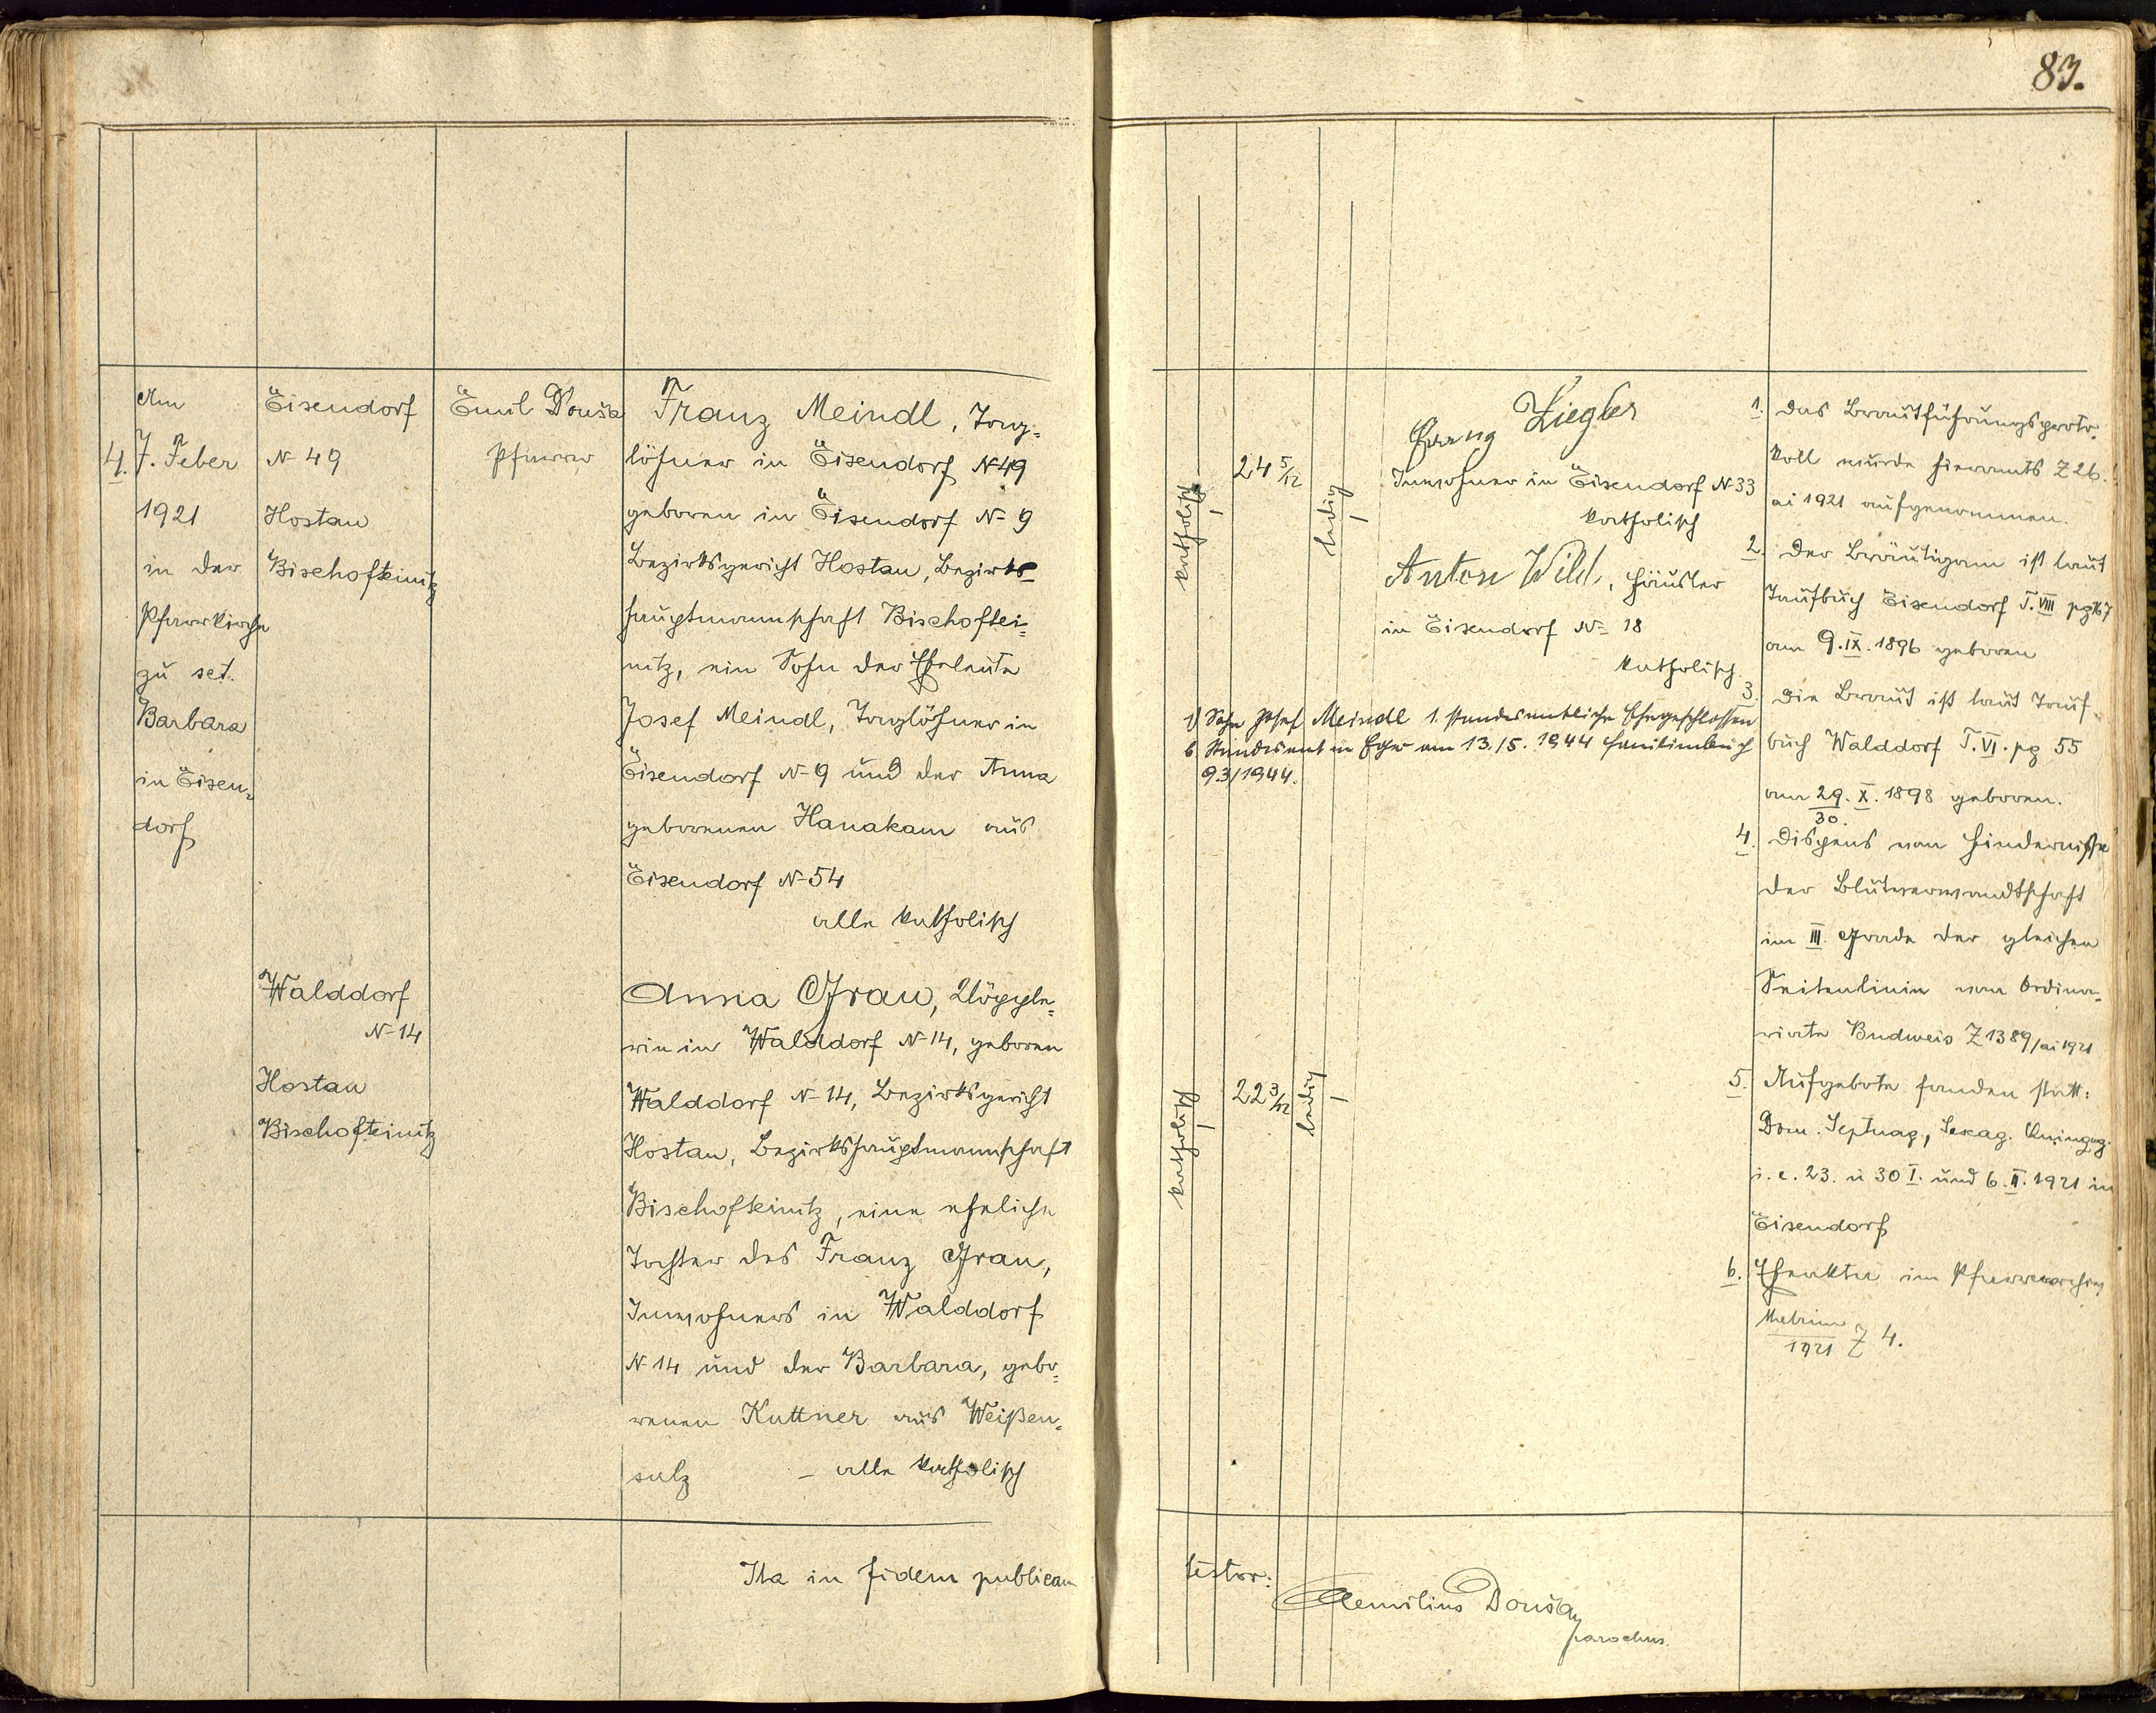 83.
Am
4. 7. Feber
1921
in der
Pfarrkirche
zu sct.
Barbara
in Eisen=
dorf
Eisendorf
N 49
Hostau
Bischofteinitz
Emil Douša
Pfarrer
Franz Meindl, Tag=
löhner in Eisendorf N-49
geboren in Eisendorf N- 9
Bezirksgericht Hostau, Bezirks=
hauptmannschaft Bischoftei=
nitz, ein Sohn der Eheleute
Josef Meindl, Taglöhner in
Eisendorf N-9 und der Anna
geborenen Hanakam aus
Eisendorf N-54
alle katholisch
Walddorf
N-14
Hostau
Bischofteinitz
Anna Grau, Klöpple=
rin in Walddorf N-14, geboren
Walddorf N-14, Bezirksgericht
Hostau, Bezirkshauptmannschaft
Bischofteinitz, eine eheliche
Tochter des Franz Grau,
Inwohners in Walddorf
N-14 und der Barbara, gebo=
renen Kuttner aus Weißen=
sulz – alle katholisch
Ita in fidem publicam
katholisch
24 5/12
ledig
Franz Ziegler
Inwohner in Eisendorf N-33
katholisch
Anton Wild, Häusler
in Eisendorf N- 18
katholisch
1) Sohn Josef Meindl 1. standesamtliche Ehe geschlossen
b. Standesamt in Eger am 13./5. 1944 Familienbuch
93/1944.
katholisch
22 3/12
ledig
1. Das Brautführungsproto=
koll wurde hieramts Z 26.
ai 1921 aufgenommen.
2. Der Bräutigam ist laut
Taufbuch Eisendorf T. VIII pg 167
am 9. IX. 1896 geboren
3. Die Braut ist laut Tauf=
buch Walddorf T. VI. pg 55
am 29. X. 1898 geboren.
30.
4. Dispens vom Hindernisse
der Blutsverwandtschaft
im III. Grade der gleichen
Seitenlinie vom Ordina=
riate Budweis Z 1389/ai 1921
5. Aufgebote fanden statt:
Dom. Septuag, Sexag. Quinqag.
i. e. 23. u 30 I. und 6. II. 1921 in
Eisendorf
6. Eheakten im Pfarrarchiv
1921 Z 4.
testor:
Aemilius Douša
parochus.